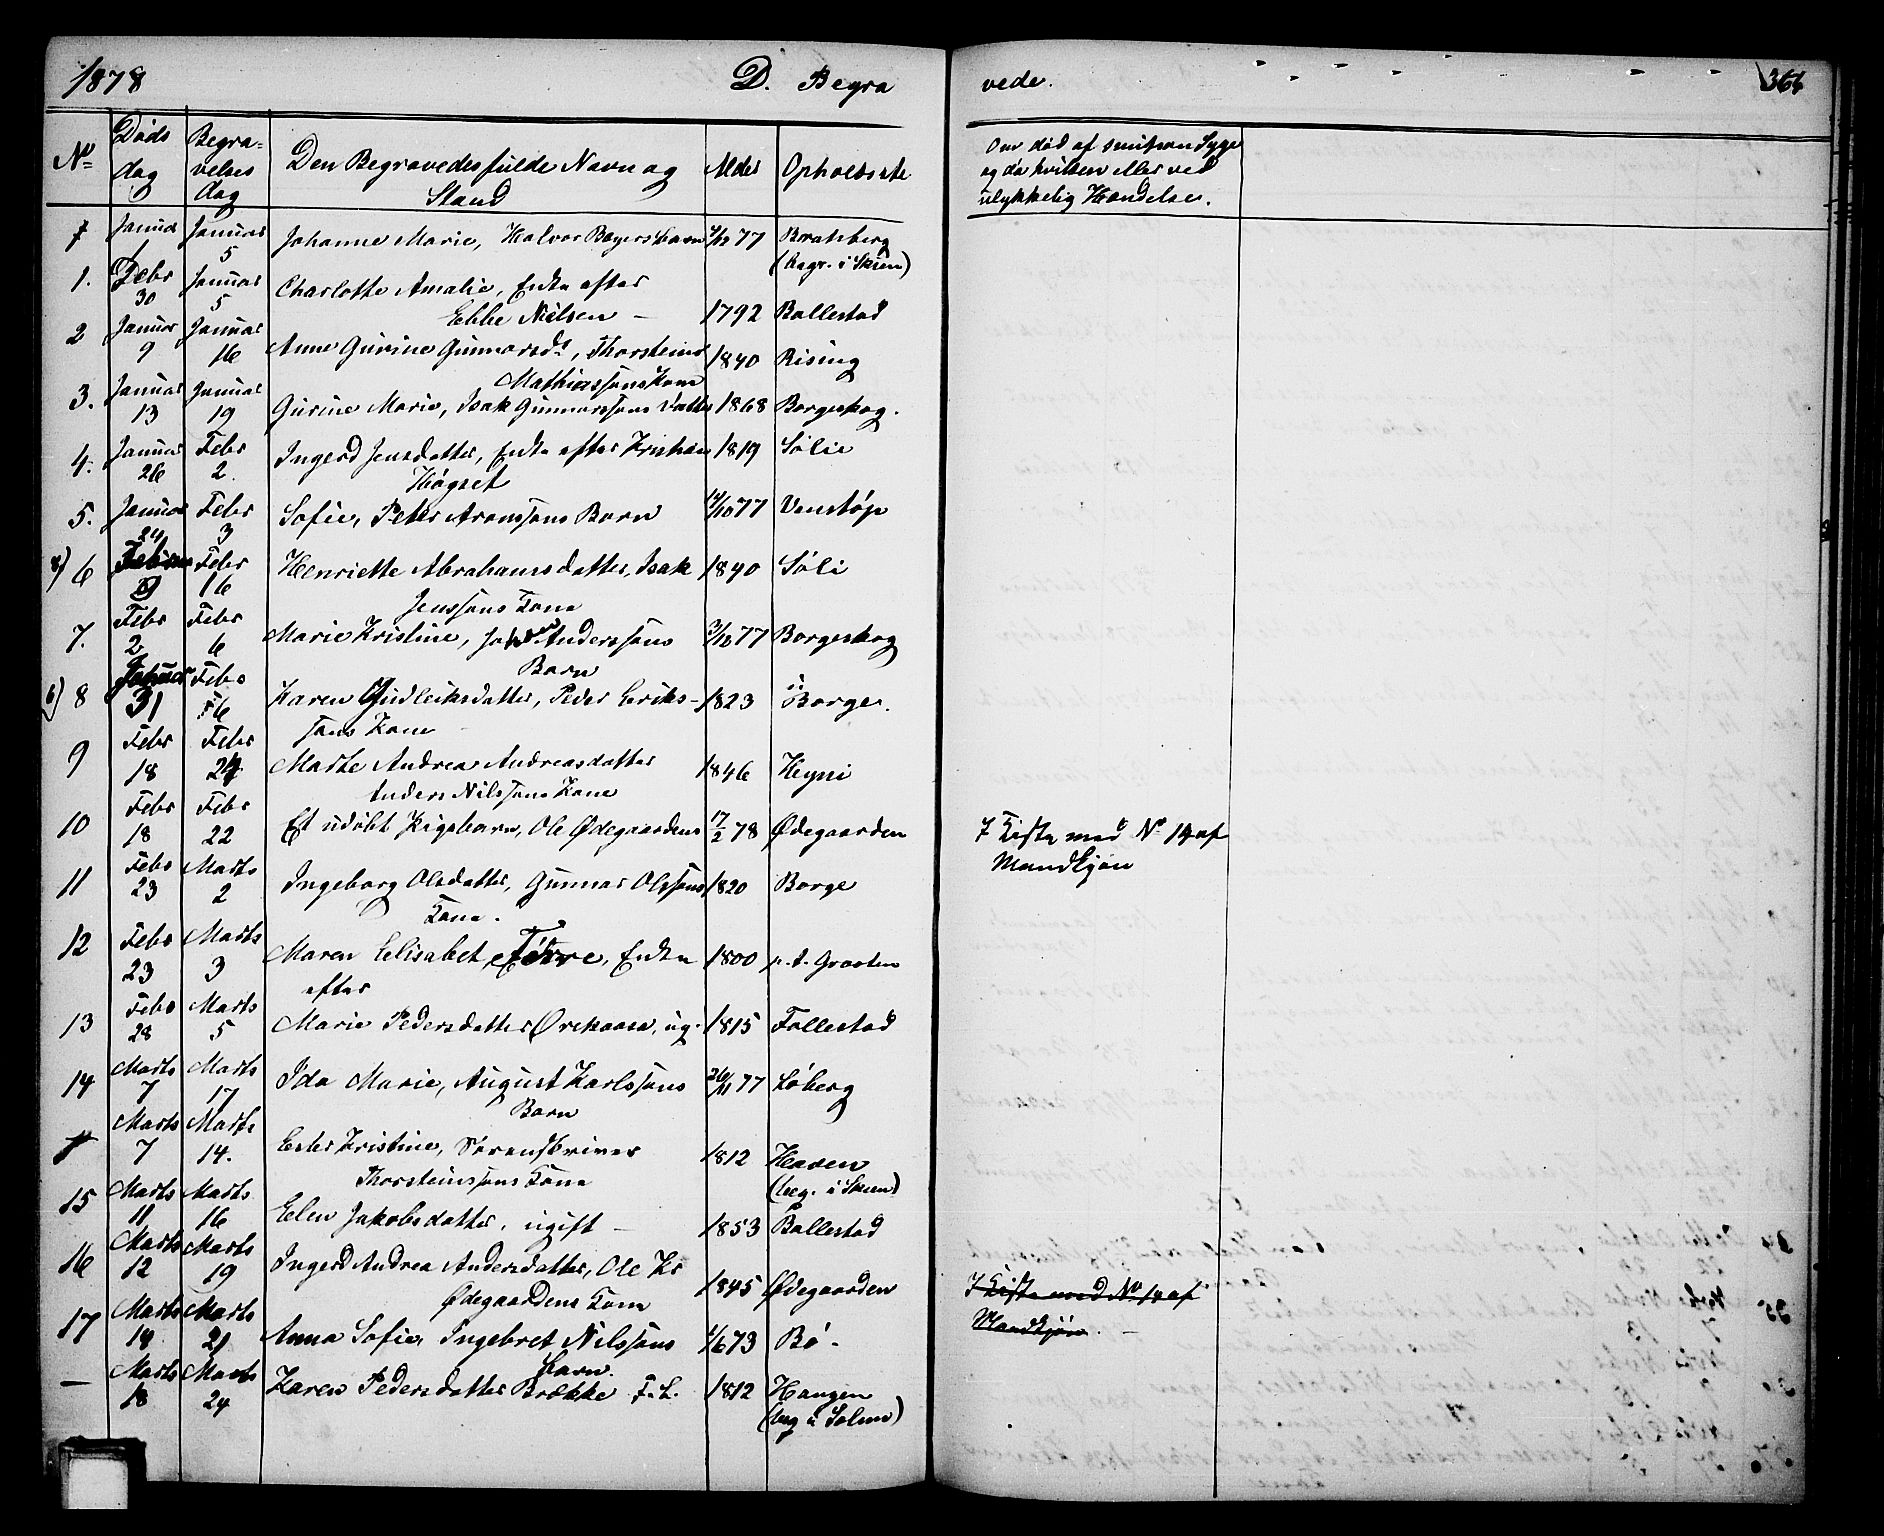 1878 D. Begra vede. 366
No Døds dag Begra= velses dag Den Begravedes fulde Navn og Stand Alder Opholdsste Om død af smitsom Syge og da hvilken eller ved ulykkelig Hændelse.
Januar 1 Januar 5 Johanne Marie, Halvor Bøyers barn /12 77 Bratsberg (begr. i Skien)
1. Debr 30 Januar 5 Charlotte Amalie, Enke efter
Ebbe Nielsen — 1792 Ballestad
2 Januar 9 Januar 16 Anne Gurine Gunnarsdt, Thorsteins
Mathiassons Kone 1840 Rising
3. Januar 13 Januar 19 Gurine Marie, Isak Gunnarssons Datter 1868 Borgeskog.
4. Januar 26 Febr 2. Ingerd Jensdatter, Enke efter Kristian
Høgset 1819 Sølie
5. Januar 24 Febr 3 Sofie, Peter Aronssons Barn 14/10 77 Venstøp
8) 6 Febr 16 Henriette Abrahamsdatter, Isak
Jenssons Kone 1840 Søli
7. Febr 2 Febr 6 Marie Kristine, Anderssons
Barn 3/12 77 Borgeskog
6) 8 Januar 31 Febr 6 Karen Gudleiksdatter, Peder Eriks-
sons Kone 1823 Borge.
9 Febr 18 Febr 24 Marte Andrea Andreasdatter
Anders Nilssons Kone 1846 Hyni
10 Febr 18 Febr 22 Et udøbt Pigebarn, Ole Ødegaardens 17/2 78 Ødegaarden I Kiste med No 14 af
Mandkjøn
11 Febr 23 Marts 2 Ingeborg Olsdatter, Gunnar Olssons
Kone. 1820 Borge
12 Febr 23 Marts 3 Maren Elisabet Tørre, Enke
efter 1800 p.t. Graaten
13 Febr 28 Marts 5 Marie Pedersdatter Ørekaasa, ug. 1815 Follestad
14 Marts 7 Marts 17 Ida Marie, August Karlssons
Barn 26/11 77 Løberg
Marts 7 Marts 14. Ester Kristine, Sorenskriver
Thorsteinssons Kone 1812 Haven
(beg. i Skien)
15 Marts 11 Marts 16 Elen Jakobsdatter, ugift — 1853 Ballestad
16 Marts 12 Marts 19 Ingerd Andrea Andersdatter, Ole Kr
Ødegaardens Kone 1845 Ødegaarden I Kiste med No 14 af
Mandkjøn. —
17 Marts 14 Marts 21 Anna Sofie, Ingebret Nilssons
barn. /6 73 Bø.
— Marts 18 Marts 24 Karen Pedersdatter Brække F. L. 1812 Haugen
(beg i Solum)